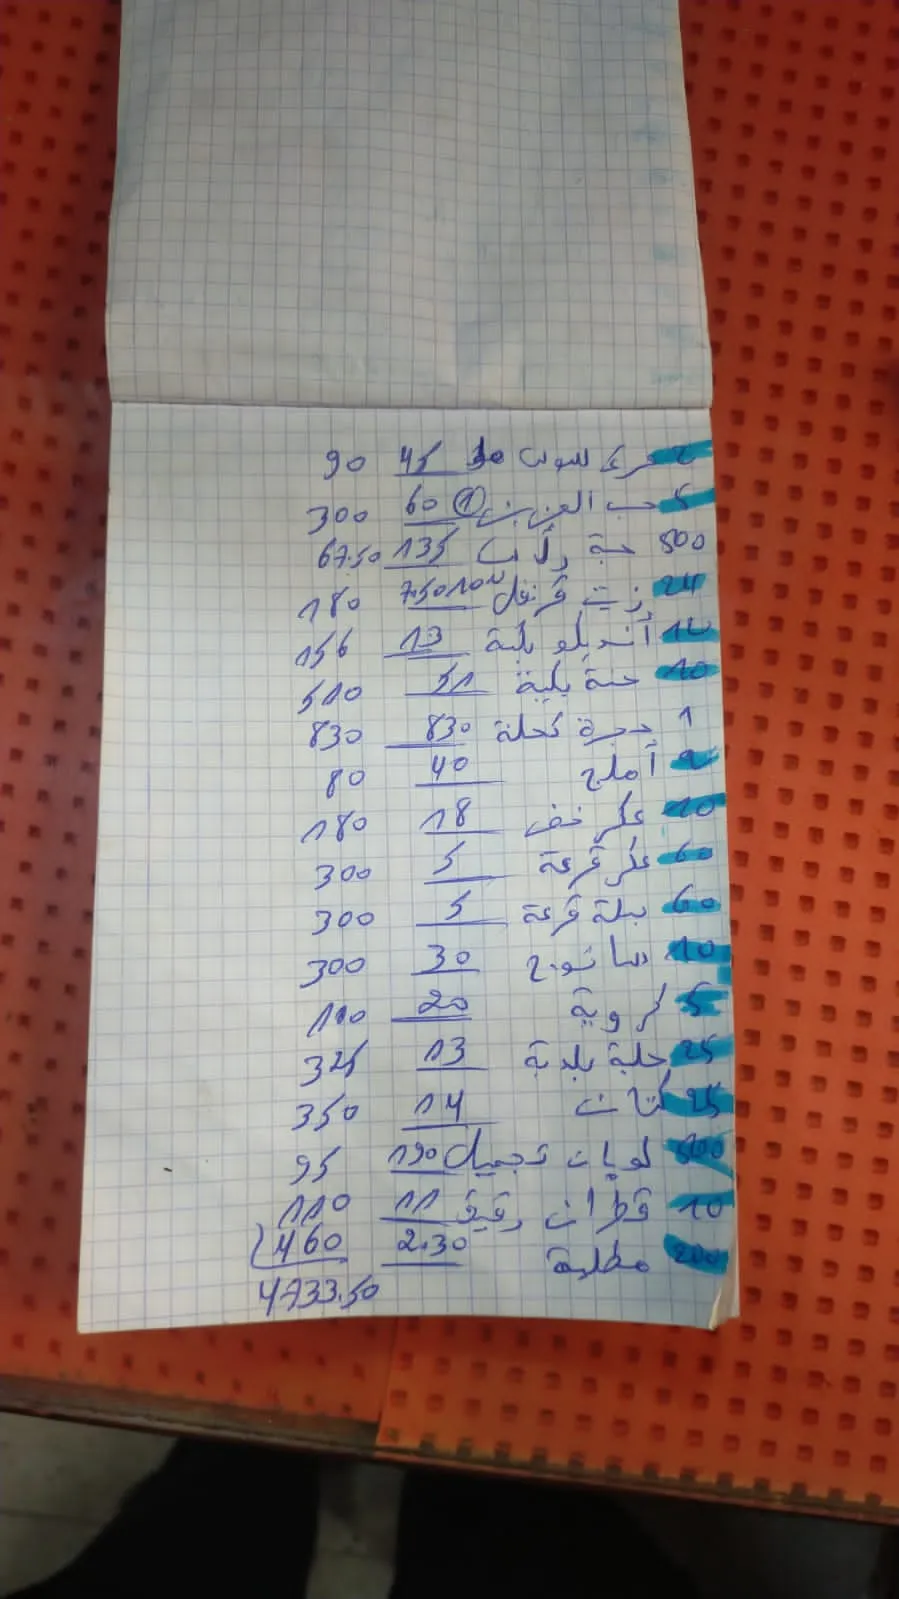 2 عرك سوس 10 45 90
5 حب العزيز 1 60 300
500 حبة 135 67.50
24 زيت قرنفل 100 7.50 180
12 أنديلو بلدية 13 156
10 حنة بلدية 51 510
1 حجرة كحلة 830 830
2 أملج 40 80
10 عكر فف 18 180
60 عكر قرعة 5 300
60 نيلة قرعة 5 300
10 سانوج 30 300
5 كروية 20 100
25 حلبة بلدية 13 325
25 كتان 14 350
500 لوبان تجميل 190 95
10 قطران رقيق 11 110
200 مطلية 2.30 460
4733.50